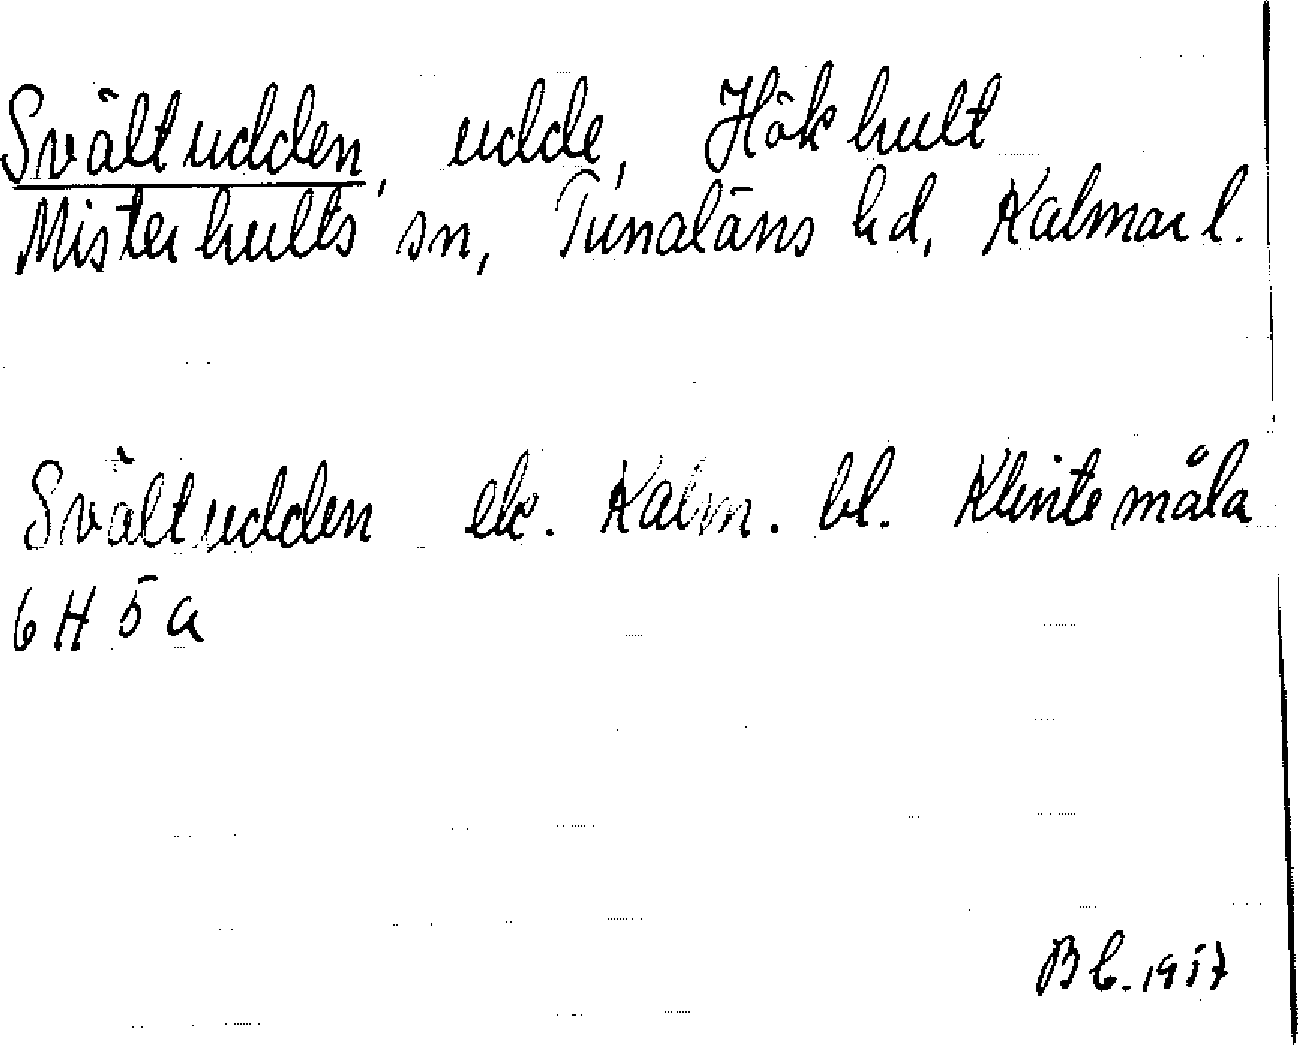 Svältudden, udde, Hökhult
Misterhults sn, Tunaläns hd, Kalmar l.
Svältudden ek. Kalm. bl. Klintemåla
6H 5a